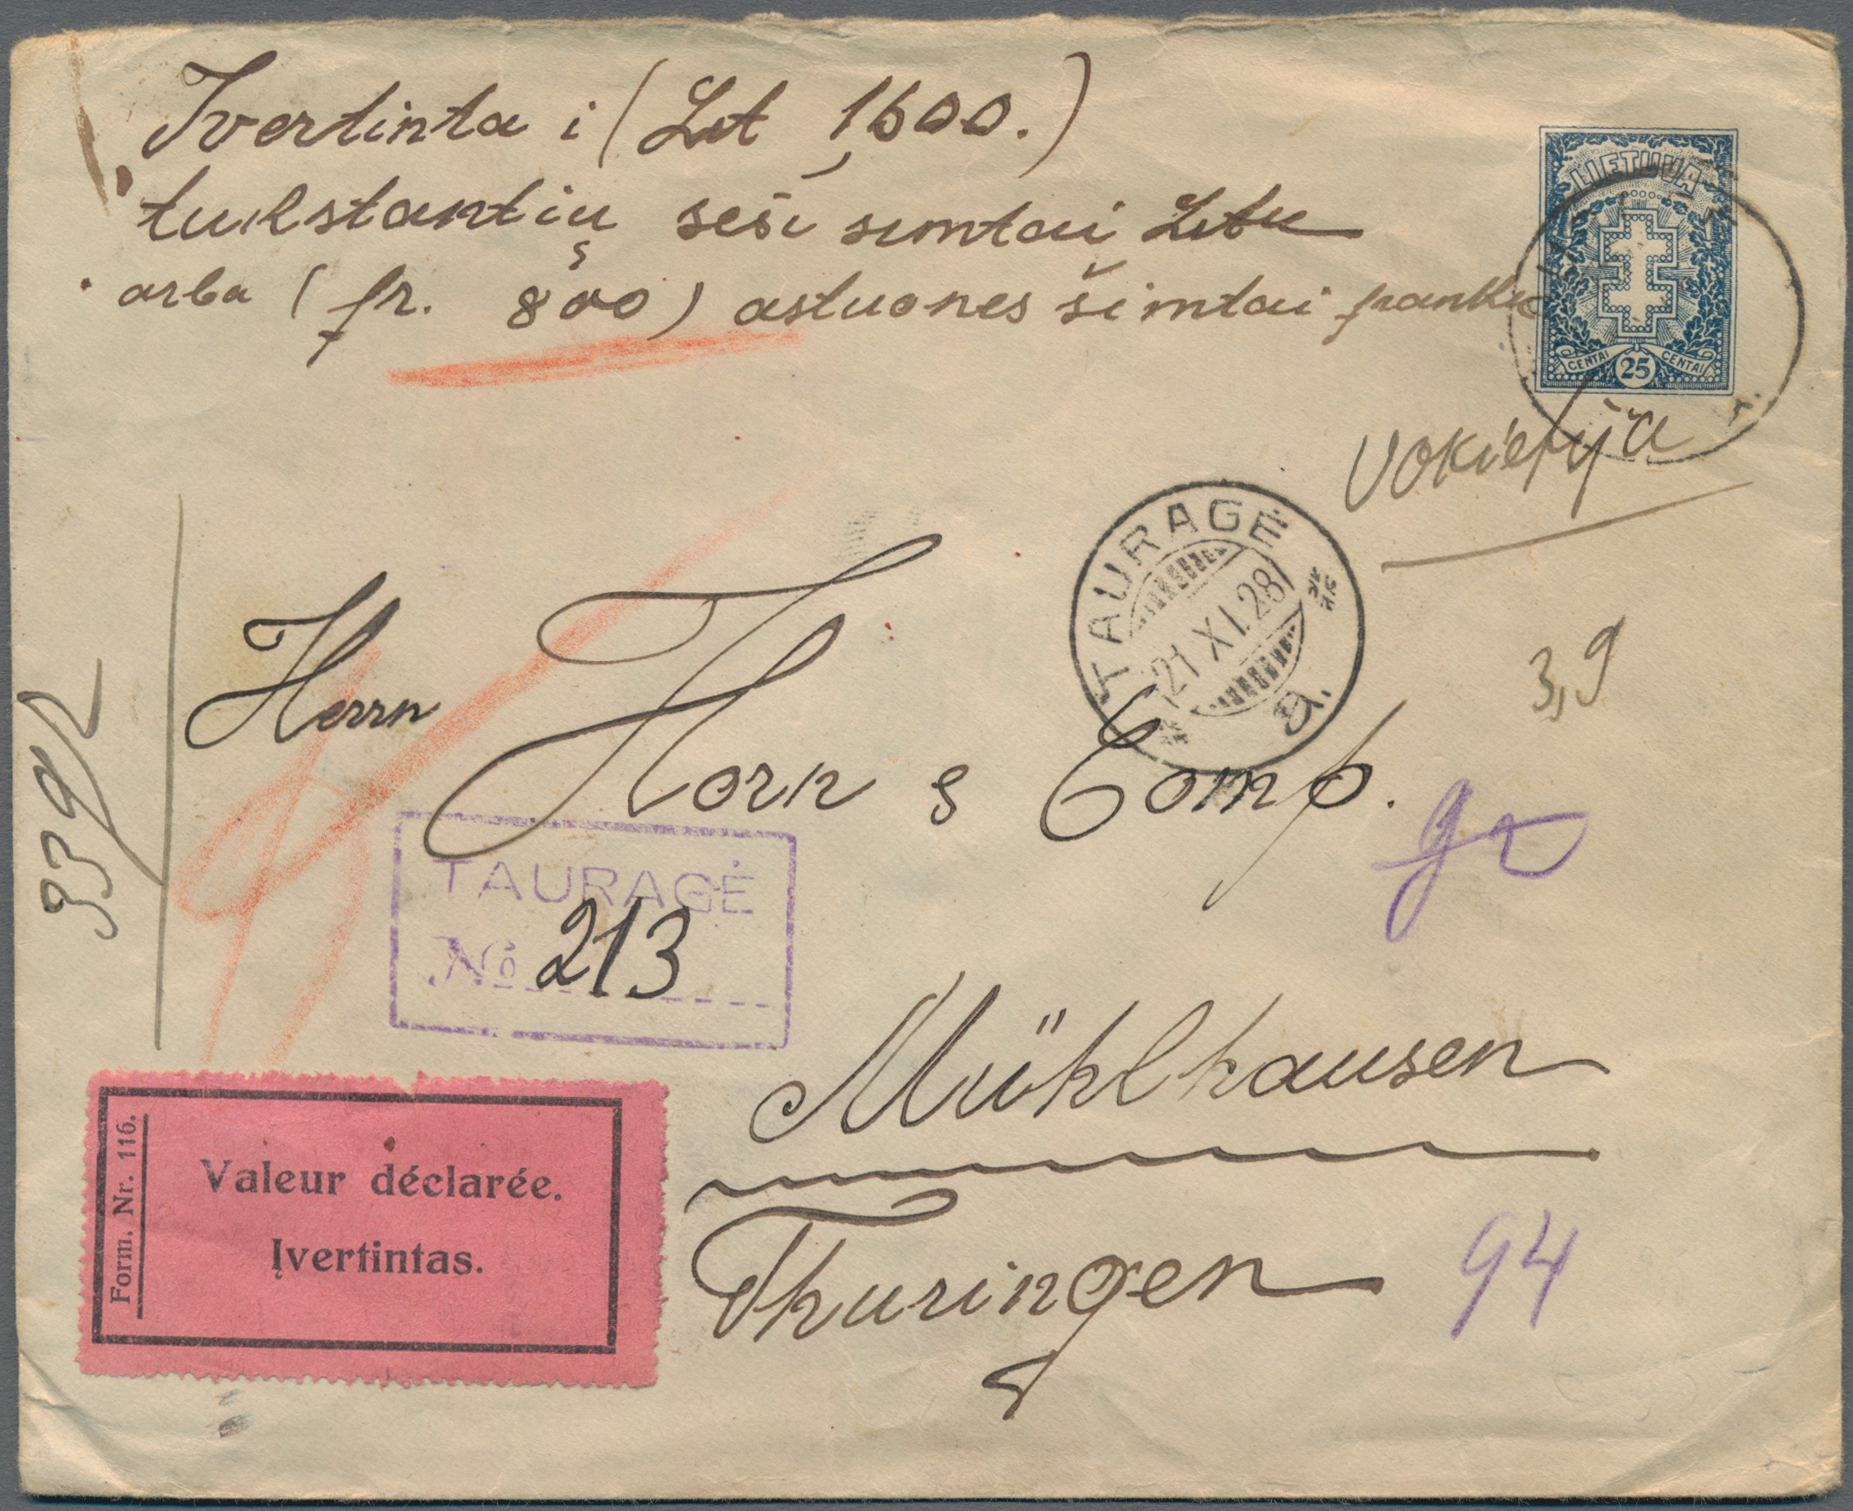 Ivertinta i (Lit 1600.)
tukstantių seši simtai Litu
arba (fr. 800) astuones šimtai franku
LIETUVA
CENTAI 25 CENTAI
Vokietija
TAURAGĖ
21 XI.28
a.
3,9
Herrn Horn & Comp.
TAURAGĖ
№ 213
Mühlhausen
Thuringen
94
Form. Nr. 116.
Valeur déclarée.
Įvertintas.